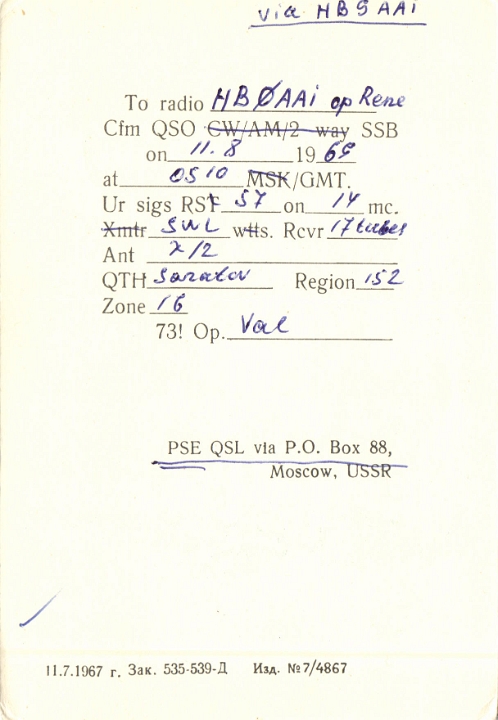 via HB9AAI
To radio HBØAAi op Rene
Cfm QSO CW/AM/2 way SSB
on 11.8 1969
at 0510 MSK/GMT.
Ur sigs RST 57 on 14 mc.
Xmtr SWL wtts. Rcvr 17 tubes
Ant λ/2
QTH Saratov Region 152
Zone 16
73! Op. Val
PSE QSL via P.O. Box 88,
Moscow, USSR
11.7.1967 г. Зак. 535-539-Д Изд. №7/4867